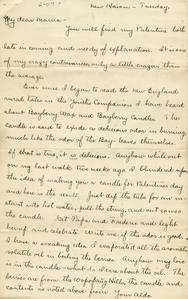 2-09?
New Haven - Tuesday.
My dear Mama -
You will find my Valentine both
late in coming and needy of explanation. It is one
of my crazy contrivances, only a little crazier than
the average.
Ever since I began to read the New England
rural tales in the Youth's Companion I have heard
about Bayberry Wax and Bayberry Candles. The
candle is said to exude a delicious odor in burning
much like the odor of the Bay-leaves themselves.
If that is true, it is delicious. Anyhow while out
on my last walk two weeks ago I blundered upon
the idea of making you a candle for Valentines day
and here is the result. Just dip the tide for an in-
stant into hot water, pull the string, and out comes
the candle. Let Papa and Frederick and light
hereof and celebrate. Write me if the odor is good.
I have a sneaking idea I evaporated all the aromatic
volatile oil in boiling the berries. Anyhow my love
is in the candle; what do I care about the oil. The
berries are from the Wepawaug Hills, the candle and
contents as noted above from Your Aldo